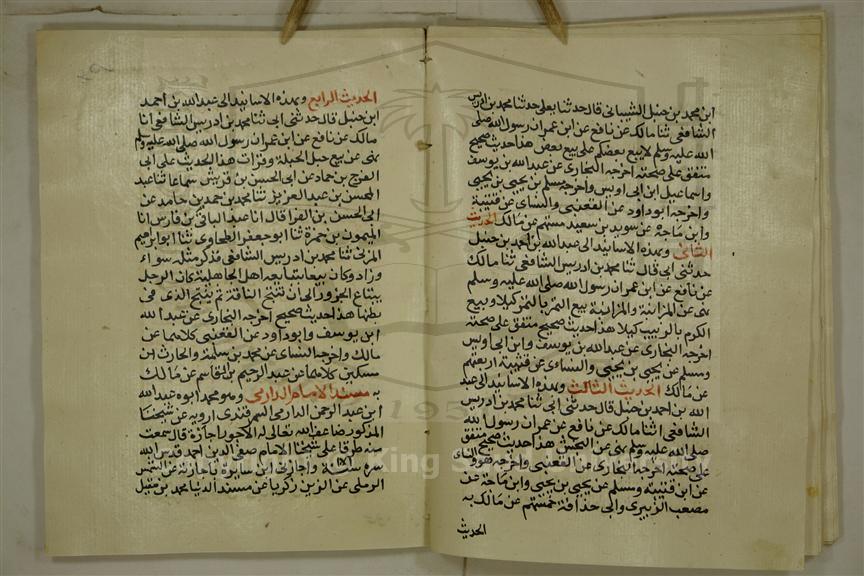 ابن محمد بن حنبل الشيباني قال حدثنا يعلى حدثنا محمد بن ادريس
الشافعي ثنا مالك عن نافع عن ابن عمران رسول الله صلى
الله عليه وسلم لا يبع بعضكم على بيع بعض هذا حديث صحيح
متفق على صحته اخرجه البخاري عن عبد الله بن يوسف
واسماعيل ابن ابي اويس واخرجه مسلم بن يحيى بن يحيى
واخرجه ابو داود عن القعنبي والنساي عن قتيبة
وابن ماجة عن سويد بن سعيد ستهم عن مالك الحديث
الثاني وبهذه الاسانيد الى عبد الله بن احمد بن حنبل
حدثني ابي قال ثنا محمد بن ادريس الشافعي ثنا مالك
عن نافع عن ابن عمران رسول الله صلى الله عليه وسلم
نهى عن المزابنة والمزابنة بيع الثمر بالتمر كيلا وبيع
الكرم بالزبيب كيلا هذا حديث صحيح متفق على صحته
اخرجه البخاري عن عبد الله بن يوسف وابن ابي اويس
ومسلم عن يحيى بن يحيى والنساى عن قتيبة اربعتهم
عن مالك الحديث الثالث وبهذه الاسانيد الى عبد
الله بن احمد بن حنبل قال حدثني ابي ثنا محمد بن ادريس
الشافعي انا مالك عن نافع عن ابن عمران رسول الله
صلى الله عليه وسلم نهى عن النجش هذا حديث صحيح متفق
على صحته اخرجه البخاري عن القعنبي واخرجه هو والنساى
عن ابن قتيبة ومسلم عن يحيى بن يحيى وابن ماجة عن
مصعب الزبيري وابي حذافة خمستهم عن مالك به
الحديث
الحديث الرابع وبهذه الاسانيد الى عبد الله بن احمد
ابن حنبل قال حدثني ابي ثنا محمد بن ادريس الشافعي انا
مالك عن نافع عن ابن عمران رسول الله صلى الله عليه وسلم
نهى عن بيع حبل الحبلة وقرات هذا الحديث على ابي
الفرج بن حماد عن ابي الحسن بن قريش سماعا ثنا عبد
المحسن بن عبد العزيز ثنا محمد بن حمد بن حامد عن
ابي الحسن بن الفرا قال انا عبد الباقي بن فارس انا
الميمون بن حمزة ثنا ابو جعفر الطحاوي ثنا ابو ابراهيم
المزني ثنا محمد بن ادريس الشافعي فذكر مثله سواء
وزاد وكان بيعا يتبايعه اهل الجاهلية كان الرجل
يبتاع الجزور الى أن تنتج الناقة ثم ينتج الذي في
بطنها هذا حديث صحيح اخرجه البخاري عن عبد الله
ابن يوسف وابو داود عن القعنبي كلاهما عن
مالك واخرجه النساى عن محمد بن سلمة والحارث بن
مسكين كلاهما عن عبد الرحيم بن القاسم عن مالك
به مسند الامام الدارمي وهو محمد ابوه عبد الله
ابن عبد الرحمن الدارمي السمرقندي ارويه عن شيخنا
المذكور ضاعف الله تعالى له الاجور اجازة قال سمعت
منه طرفا على شيخنا الامام صفي الدين احمد قدس الله
سره واجازني بسايره باجازته عن الشمس
الرملي عن الزين زكريا عن مسند الدنيا محمد بن مقبل
King Saud
195